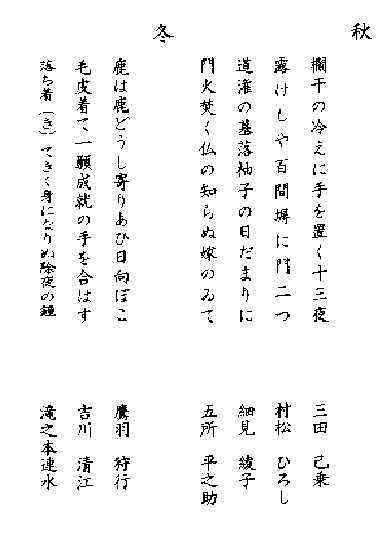 秋
欄干の冷えに手を置く十三夜 三田 己乗
露けしや百間塀に門二つ 村松 ひろし
道灌の墓落柚子の日だまりに 細見 綾子
門火焚く仏の知らぬ嫁のゐて 五所 平之助
冬
鹿は鹿どうし寄りあひ日向ぼこ 鷹羽 狩行
毛皮着て一願成就の手を合はす 吉川 清江
落ち着(き)てきく身になりぬ除夜の鐘 滝之本連水